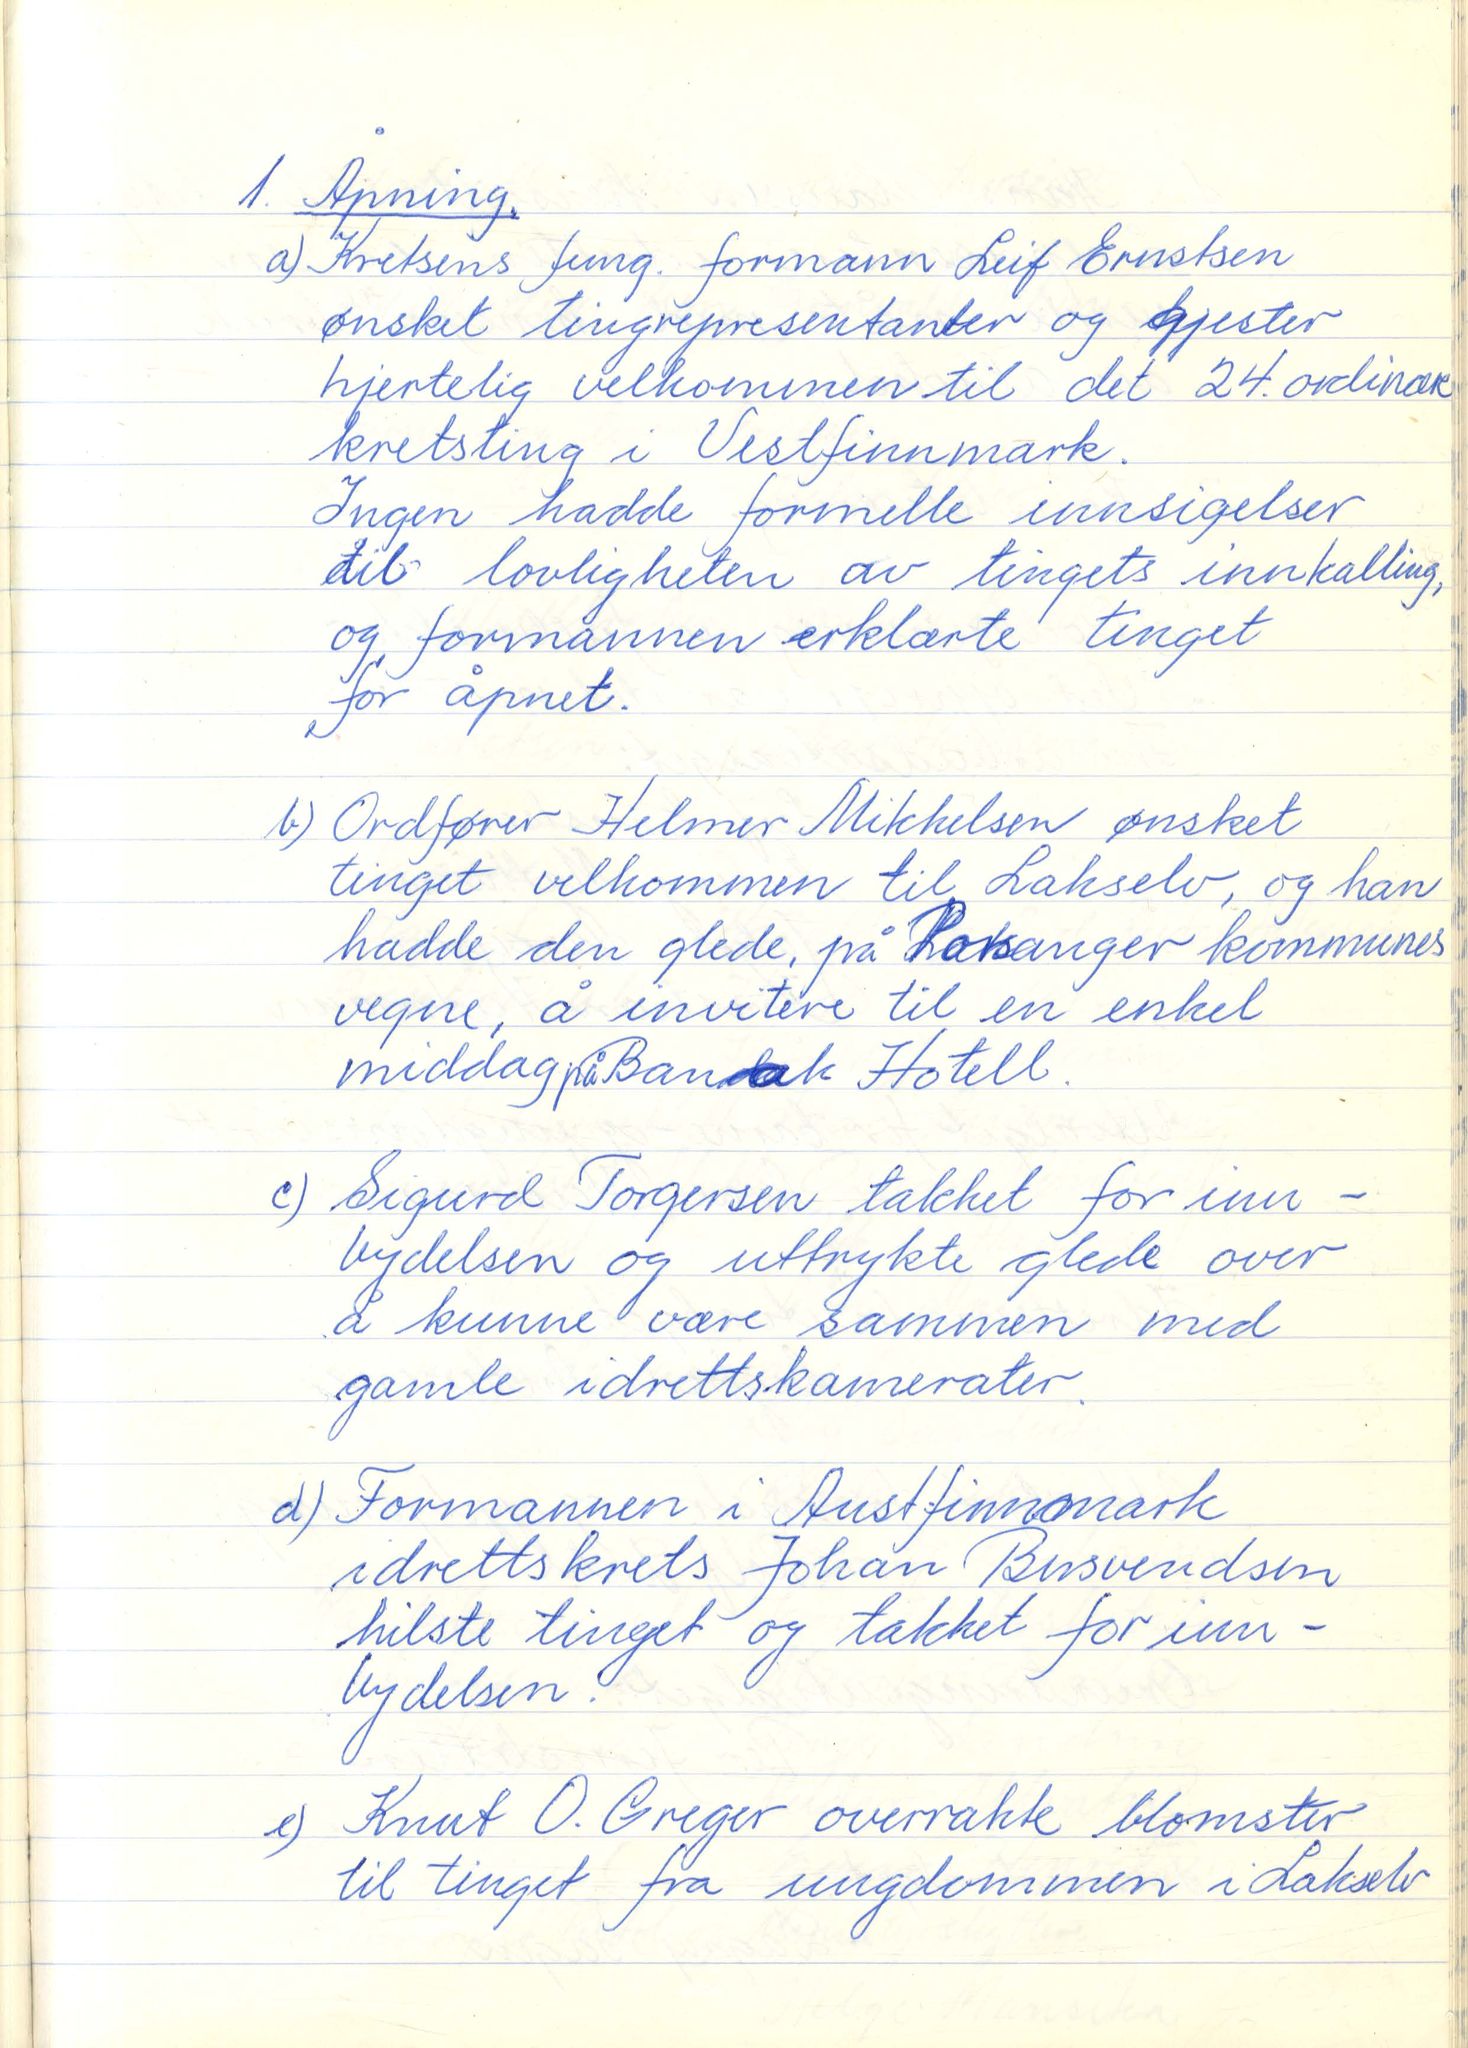 1. Åpning.
a) Kretsens fung. formann Leif Ernstsen
ønsket tingrepresentanter og gjester
hjertelig velkommen til det 24. ordinære
kretsting i Vestfinnmark.
Ingen hadde formelle innsigelser
til lovligheten av tingets innkalling,
og formannen erklærte tinget
for åpnet.
b) Ordfører Helmer Mikkelsen ønsket
tinget velkommen til Lakselv, og han
hadde den glede, på Porsanger kommunes
vegne, å invitere til en enkel
middag på Banak Hotell.
c) Sigurd Torgersen takket for inn-
bydelsen og uttrykte glede over
å kunne være sammen med
gamle idrettskamerater.
d) Formannen i Austfinnmark
idrettskrets Johan Busvendsen
hilste tinget og takket for inn-
bydelsen.
e) Knut O. Greger overrakte blomster
til tinget fra ungdommen i Lakselv